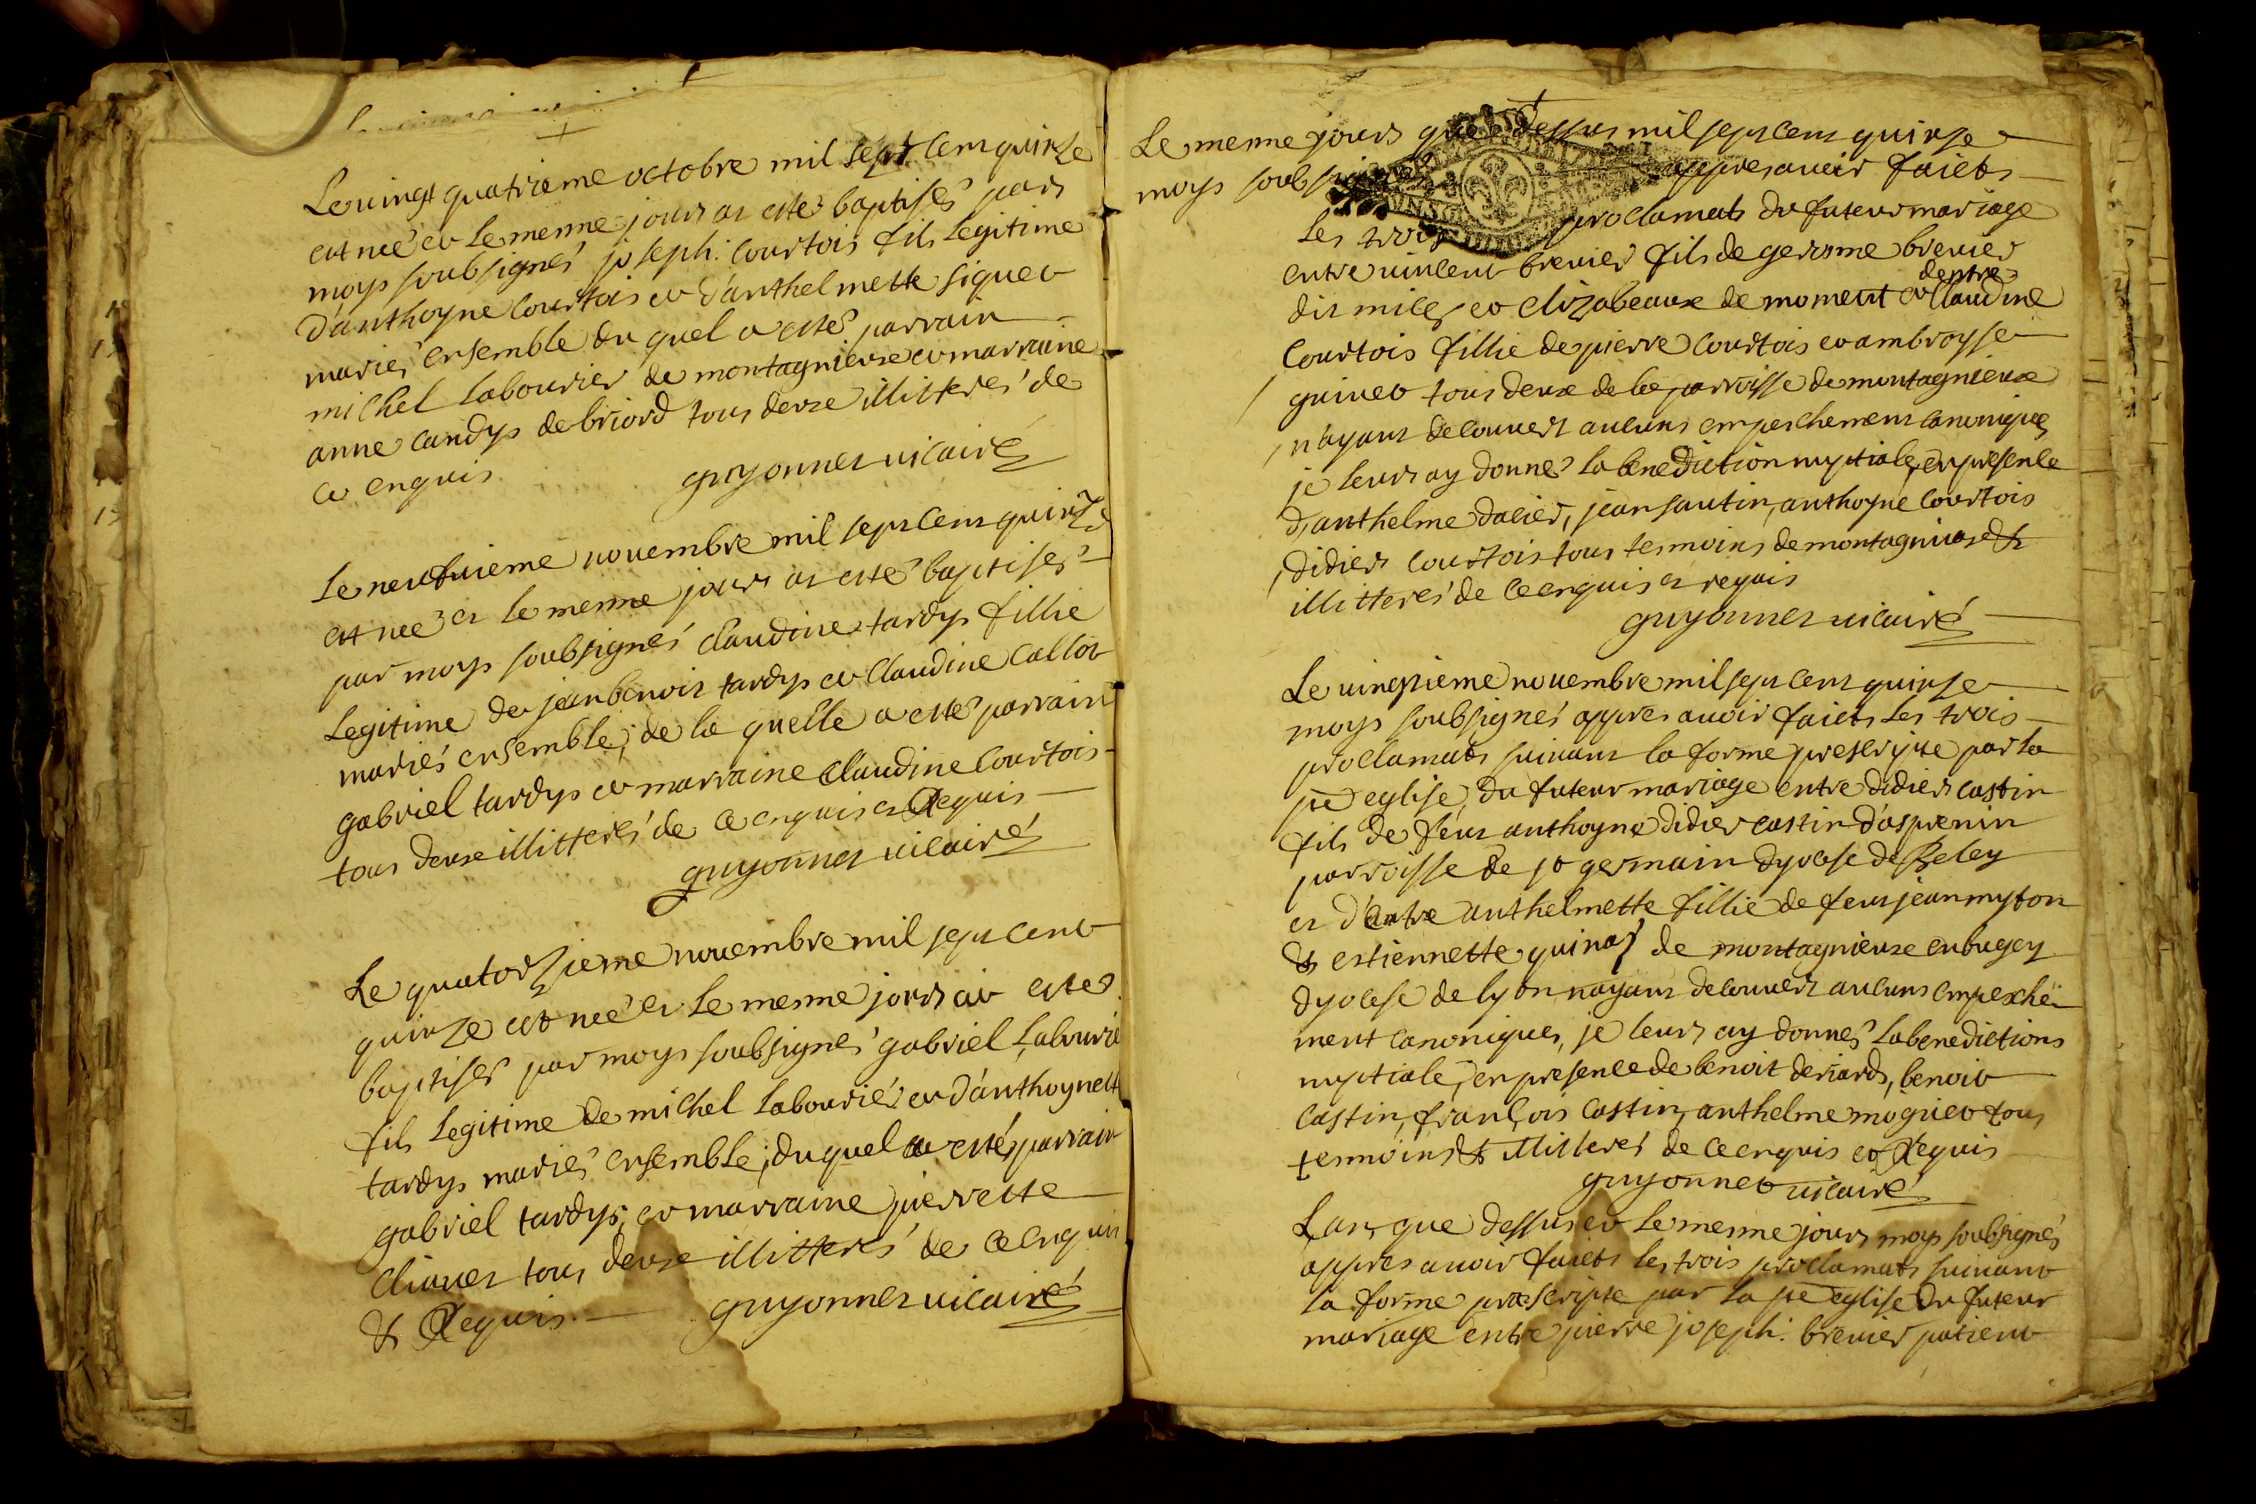 Le vingt quatrieme octobre mil sept cent quinze
est neé et le mesme jours at estes baptisés par
moys soubsignés joseph: courtois fils legitime
d'anthoyne courtois et d'anthelmette siguet
mariés ensemble du quel a estés parrain
michel labourier de montagnieuse et marraine
anne candys de briord tous deuse illitterés de
ce enquis
guyonnet vicairé
Le neufvieme novembre mil sept cent quinze
est neé et le mesme jours at estés baptisés
par moys soubsignés claudine tardys fillie
legitime de jean benoit tardys et claudine callot
mariés ensemble, de la quelle a estés parrain
gabriel tardys et marraine claudine courtois
tous deuse illitterés de ce enquis et Requis
guyonnet vicairé
Le quatorzieme novembre mil sept cent
quinze est neé et le mesme jours at estes
baptisés par moys soubsignés gabriel labourie
fils legitime de michel labouriér et d'anthoynett
tardys mariés ensemble, du quel a estés parrain
gabriel tardys, et marraine pierrette
clivaet tous deuse illitterés de ce enquis
& Requis
guyonnet vicairé
Le mesme jours que dessus mil sept cent quinze
moys soubsignés appres avoir faicts
les trois proclamats du futeur mariage
entre vincent brevier fils de gerosme brevier
dentre
dit mice et elizabeause de moment et claudine
courtois fillie de pierre courtois et ambroysse
guinet tous deux de la parroisse de montagnieuse
n'ayant decouvert aucuns empeschement canonique
je leurs ay donnes la benediction nuptiale, en presence
d'anthelme dacier, jean sautin, anthoyne courtois
didier courtois tous tesmoins de montagnieuse &
illitterés de ce enquis et requis
guyonnet vicairé
Le vingtieme novembre mil sept cent quinze
moys soubsignés appres avoir faicts les trois
proclamats suivant la forme prescripte par la
pte eglise, du futeur mariage entre didier castin
fils de feut anthoyne didier castin d'asprenin
parroisse de st germain dyocese de Beley
et d'entre anthelmette fillie de feut jean myton
& estiennette quinat de montagnieuse en bugey
dyocese de lyon nayant decouvert aucuns empesche
ment canoniques, je leurs ay donnés la benedictions
nuptiale, en presence de benoit deriards, benoit
castin, françois castin, anthelme moguet tous
tesmoins & illitterés de ce enquis et Requis
guyonnet vicairé
L'an que dessus et le mesme jours moys soubsignés
appres avoir faicts les trois proclamats suivant
la forme prescripte par la pte eglise du futeur
mariage entre pierre joseph: brevier patient